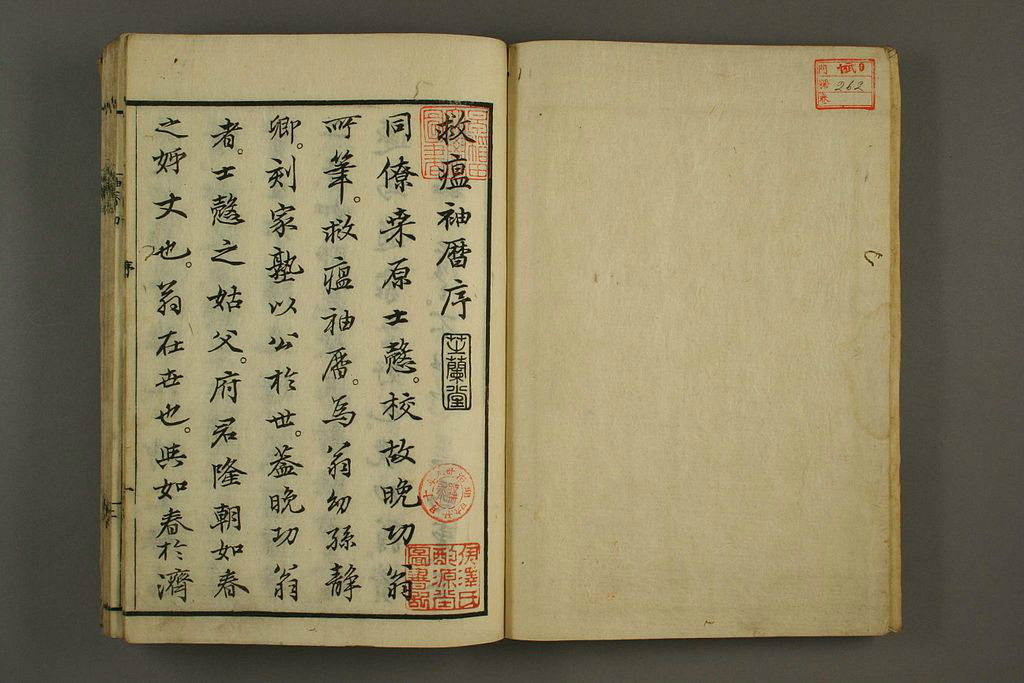 262
救瘟袖暦序
芝蘭堂
同僚桒原士愨。校故晚功翁
所筆。救瘟袖暦。為翁幼孫静
卿。刻家塾以公於世。蓋晚功翁
者。士愨之姑父。府君隆朝如春
之姉丈也。翁在世也。與如春於濟
伊澤氏
酌源堂
圖書記